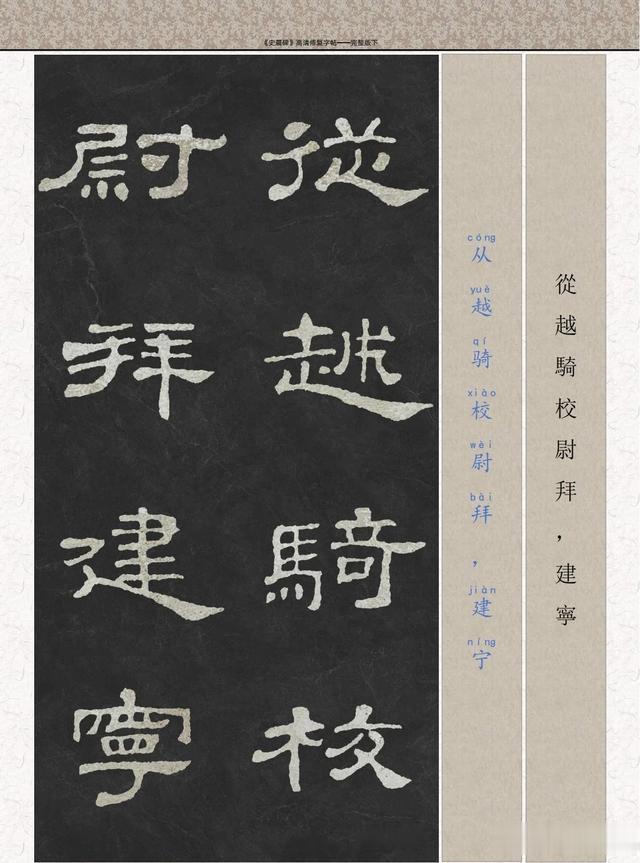 《史晨碑》高清修复字帖——完整版下
從越騎校
尉拜建寧
cóng yuè qí xiào wèi bài jiàn níng
从越骑校尉拜，建宁
從越騎校尉拜，建寧